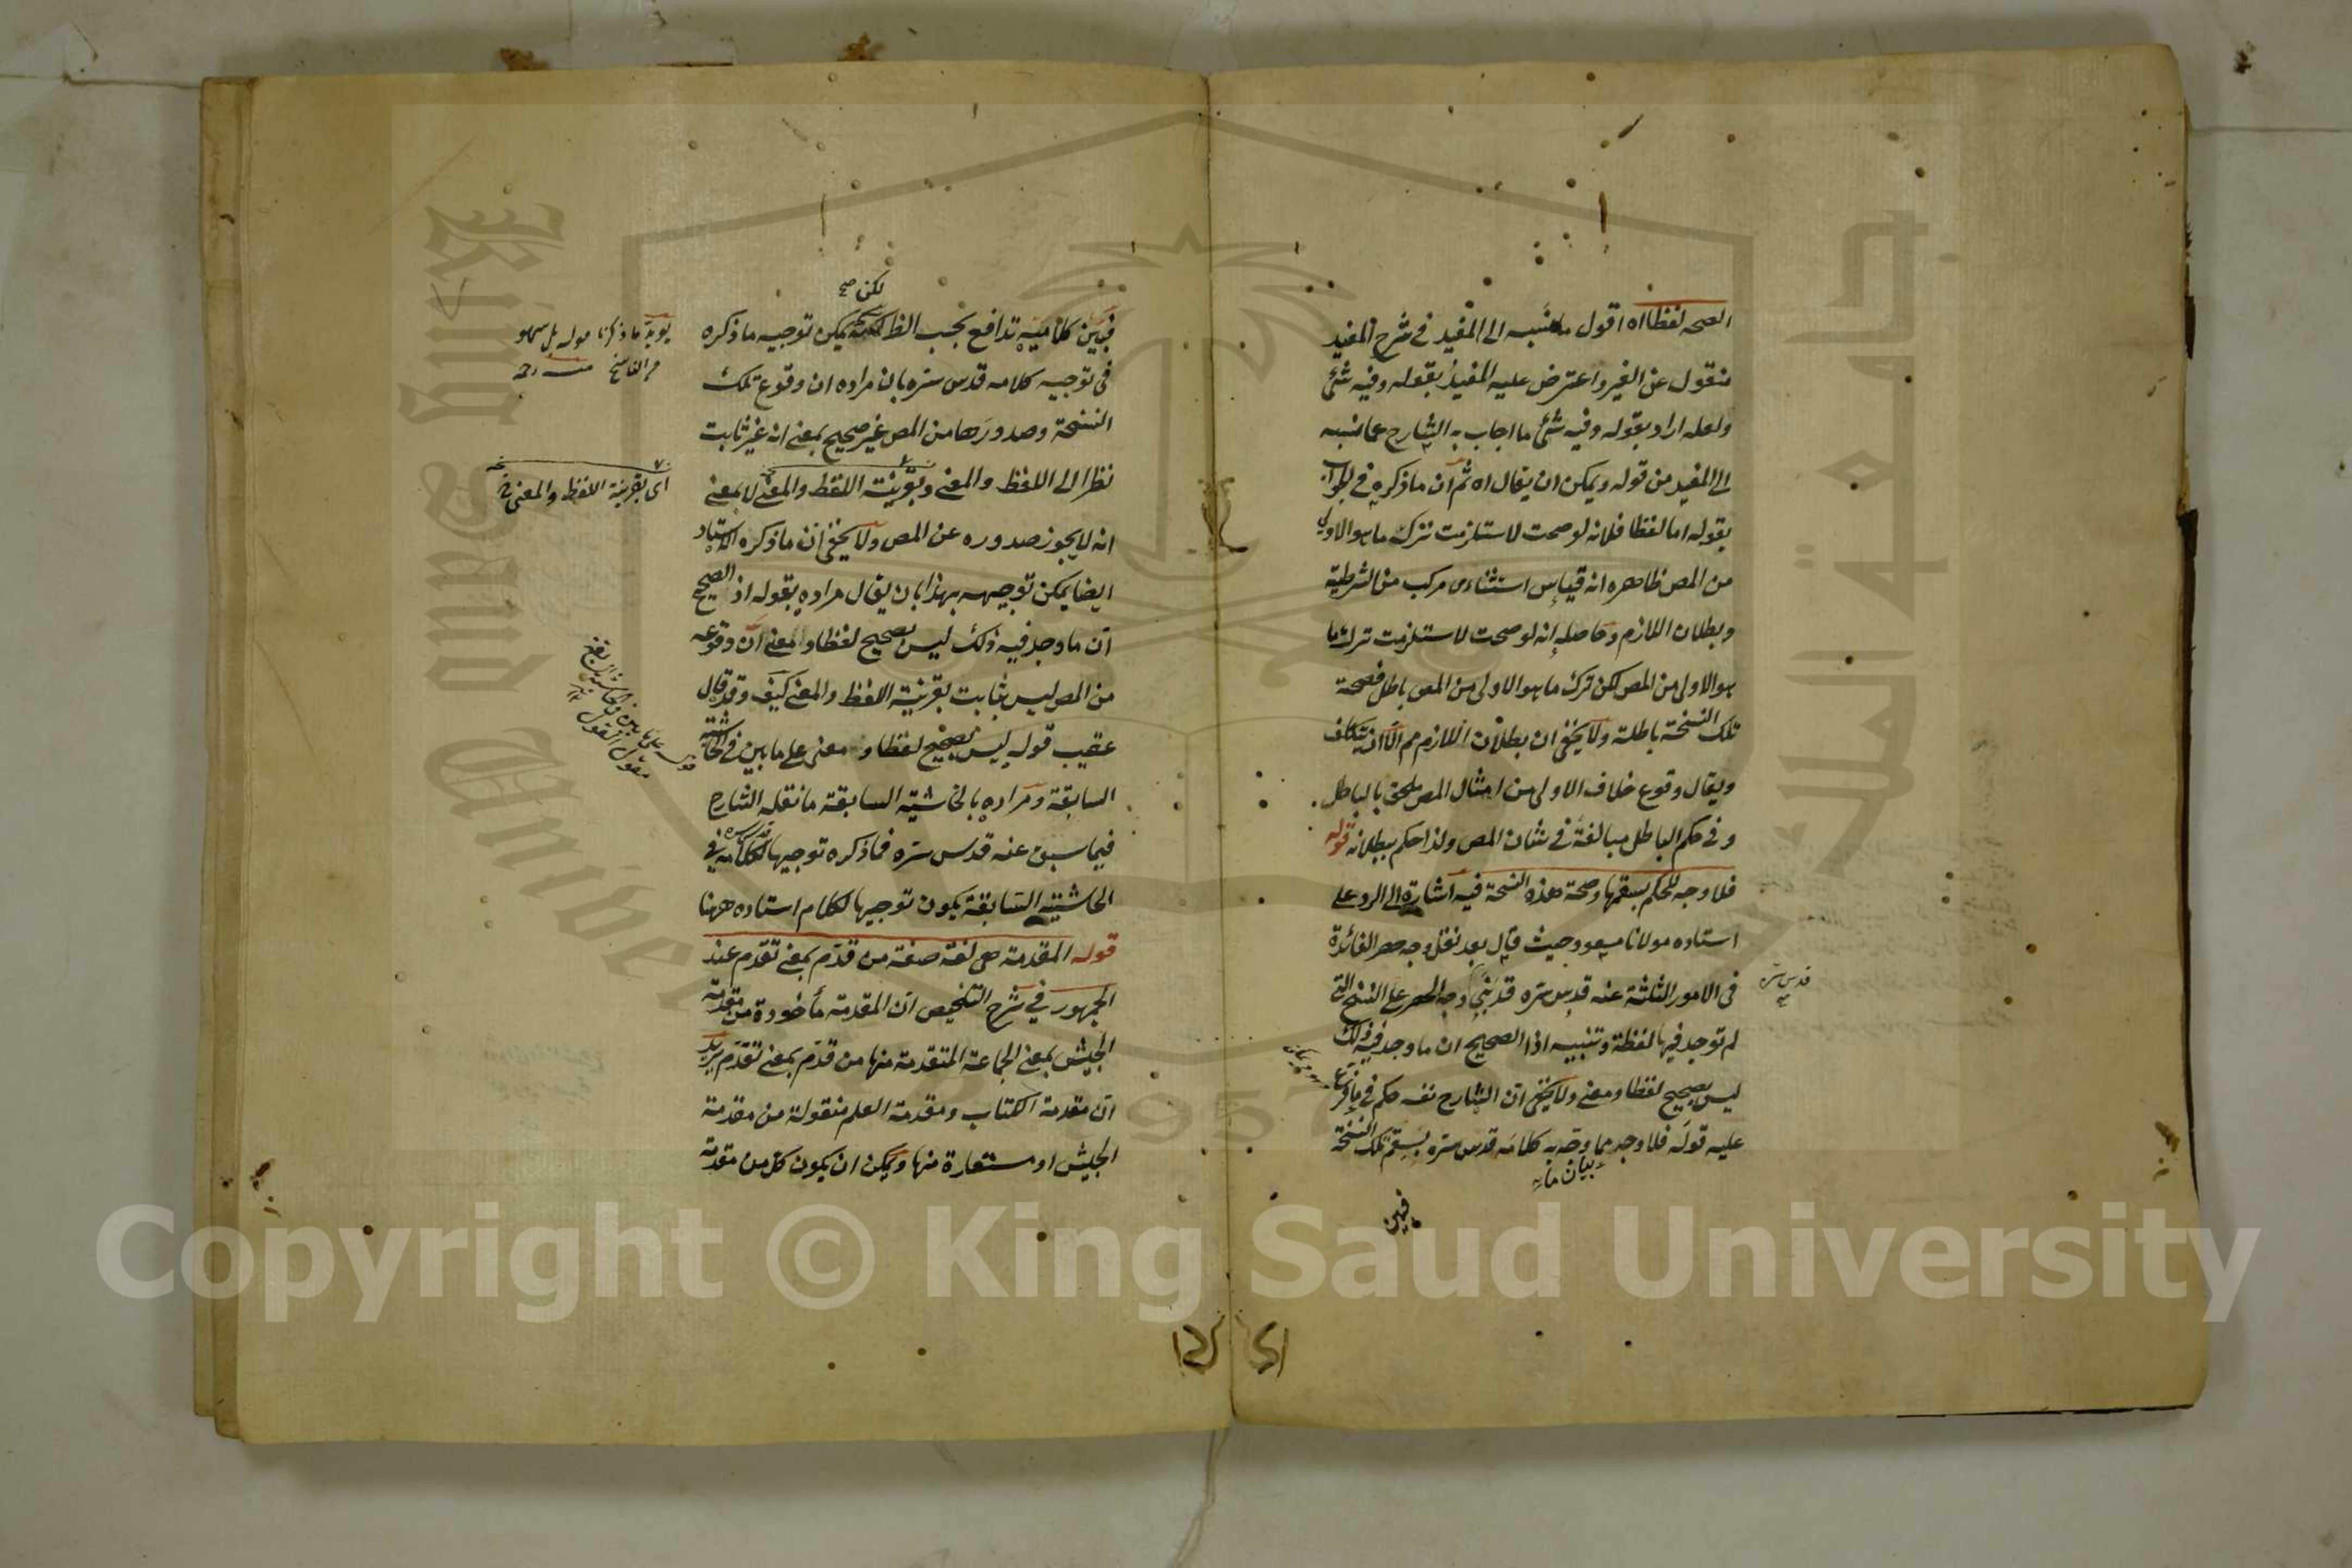 الصحه لفظا اه اقول ما نسبه الى المفيد في شرح المفيد
منقول عن الغير واعترض عليه المفيد بقوله وفيه شئ
ولعله اراد بقوله وفيه شئ ما اجاب به الشارح عما نسبه
الى المفيد من قوله ويمكن ان يقال اه ثم ان ما ذكره في الجواب
بقوله اما لفظا فلانه لو صحت لاستلزمت ترك ما هو الاولى
من المص ظاهره انه قياس استثناءى مركب من الشرطية
وبطلان اللازم وحاصله انه لو صحت لاستلزمت ترك ما
هو الاولى من المص لكن ترك ما هو الاولى من المص باطل فصحة
تلك النسخة باطلة ولا يخفى ان بطلان اللازم مم الا ان يتكلف
ويقال وقوع خلاف الاولى من امثال المص ملحق بالباطل
وفي حكم الباطل مبالغة في شان المص ولذا حكم ببطلانه قوله
فلا وجه للحكم بسقمها وصحة هذه النسخة فيه اشارة الى الرد على
استاده مولانا مسعود حيث قال بعد نقل وجه حصر الفائدة
في الامور الثلثة عنه قدس سره قد بني وجه الحصر على النسخ التي
لم توجد فيها لفظة وتنبيه اذ الصحيح ان ما وجد فيه ذلك
ليس بصحيح لفظا ومعنى ولا يخفى ان الشارح نفسه حكم في ما فرع
عليه قوله فلا وجه مما وجه به كلامه قدس سره بسقم تلك النسخة
بيان ما
فبين
قدس سره
لكن صح
فبين كلاميه تدافع بحسب الظ يمكن توجيه ما ذكره
في توجيه كلامه قدس سره بان مراده ان وقوع تلك
النسخة وصدورها من المص غير صحيح بمعنى انه غير ثابت
نظرا الى اللفظ والمعنى وبقرينة اللفظ والمعنى لا بمعنى
انه لا يجوز صدوره عن المص ولا يخفى ان ما ذكره الاستاد
ايضا يمكن توجيهه بهذا بان يقال مراده بقوله اذ الصحيح
ان ما وجد فيه ذلك ليس بصحيح لفظا والمعنى ان وقوعه
من المص ليس بثابت بقرينة اللفظ والمعنى كيف وقد قال
عقيب قوله ليس بصحيح لفظا ومعنى على ما بين في الحاشية
السابقة ومراده بالحاشية السابقة ما نقله الشارح
فيما سبق عنه قدس سره فما ذكره توجيها لكلامه في
الحاشية السابقة يكون توجيها لكلام استاده ههنا
قوله المقدمة هى لغة صفة من قدم بمعنى تقدم عند
الجمهور في شرح التلخيص ان المقدمة مأخوذة من مقدمة
الجيش بمعنى الجماعة المتقدمة منها من قدم بمعنى تقدم يريد
ان مقدمة الكتاب ومقدمة العلم منقولة من مقدمة
الجيش او مستعارة منها ويمكن ان يكون كل من مقدمة
اى بقرينة اللفظ والمعنى
Copyright © King Saud University
King Saud University
جامعة الملك
1957